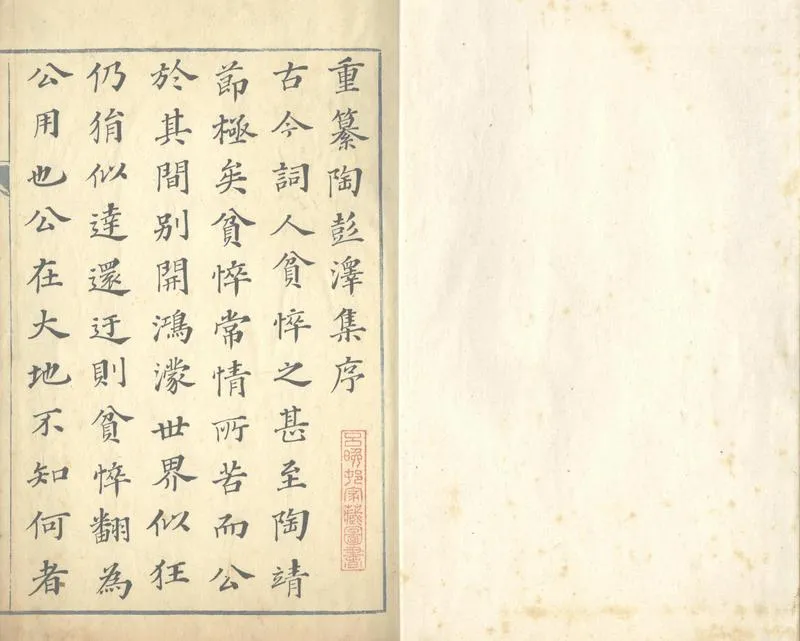 重纂陶彭澤集序
古今詞人貧悴之甚至陶靖
節極矣貧悴常情所苦而公
於其間別開鴻濛世界似狂
仍狷似達還迂則貧悴翻為
公用也公在大地不知何者
呂晚邨家藏圖書